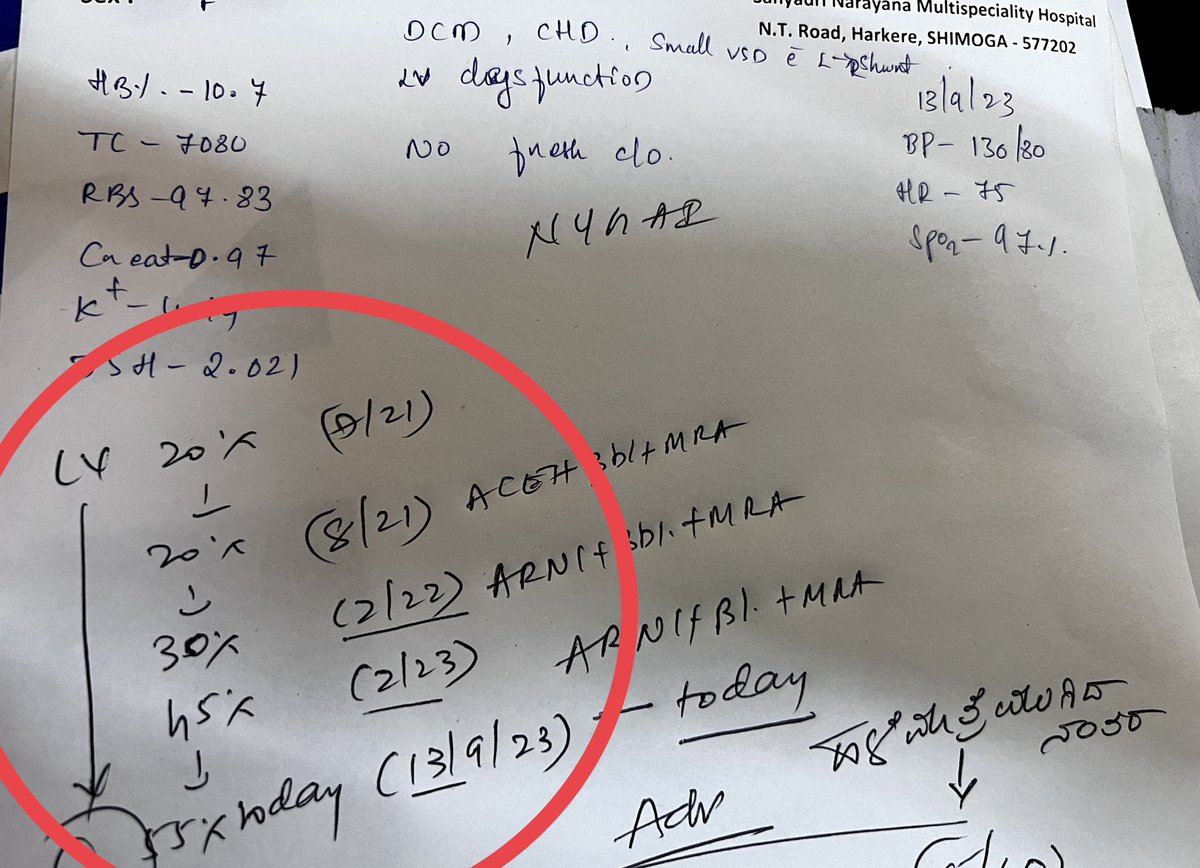 Narayana Multispeciality Hospital
N.T. Road, Harkere, SHIMOGA - 577202
DCM, CHD., Small VSD c̄ L→R Shunt
LV dysfunction
13/9/23
HB%. - 10.7
TC - 7080
No fresh c/o.
BP - 130/80
RBS - 97.83
HR - 75
NYHA I
SpO2 - 97%.
Creat - 0.97
K+ -
- 2.021
LV 20%
↓
20% (8/21) ACEI + Bbl + MRA
↓
30% (2/22) ARNI + Bbl. + MRA
45% (2/23) ARNI + Bl. + MRA
↓
55% today (13/9/23) — today
Adv